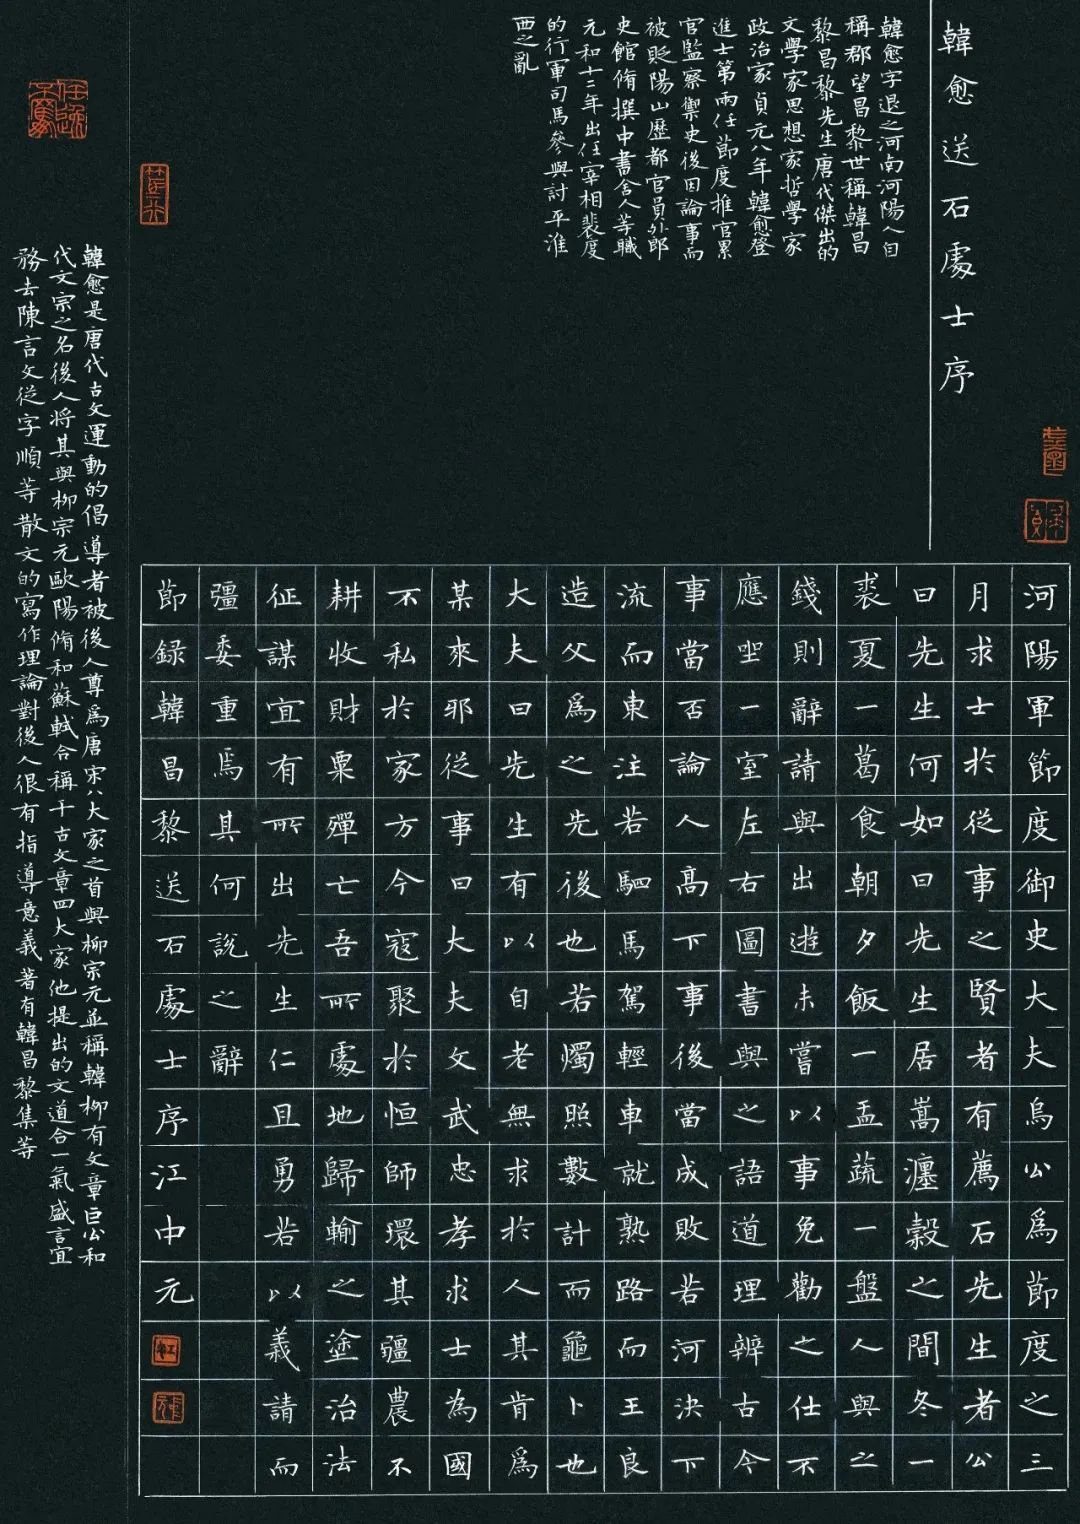 韓愈送石處士序
韓愈字退之河南河陽人自
稱郡望昌黎世稱韓昌
黎昌黎先生唐代傑出的
文學家思想家哲學家
政治家貞元八年韓愈登
進士第兩任節度推官累
官監察禦史後因論事而
被貶陽山歷都官員外郎
史館脩撰中書舍人等職
元和十二年出任宰相裴度
的行軍司馬參與討平淮
西之亂
河陽軍節度御史大夫烏公爲節度之三
月求士於從事之賢者有薦石先生者公
曰先生何如曰先生居嵩瀍穀之間冬一
裘夏一葛食朝夕飯一盂蔬一盤人與之
錢則辭請與出遊未嘗以事免勸之仕不
應坐一室左右圖書與之語道理辨古今
事當否論人高下事後當成敗若河決下
流而東注若駟馬駕輕車就熟路而王良
造父爲之先後也若燭照數計而龜卜也
大夫曰先生有以自老無求於人其肯爲
某來邪從事曰大夫文武忠孝求士為國
不私於家方今寇聚於恒師環其疆農不
耕收財粟殫亡吾所處地歸輸之塗治法
征謀宜有所出先生仁且勇若以義請而
彊委重焉其何說之辭
節録韓昌黎送石處士序江中元
韓愈是唐代古文運動的倡導者被後人尊爲唐宋八大家之首與柳宗元並稱韓柳有文章巨公和百
代文宗之名後人将其與柳宗元歐陽脩和蘇軾合稱千古文章四大家他提出的文道合一氣盛言宜
務去陳言文從字順等散文的寫作理論對後人很有指導意義著有韓昌黎集等